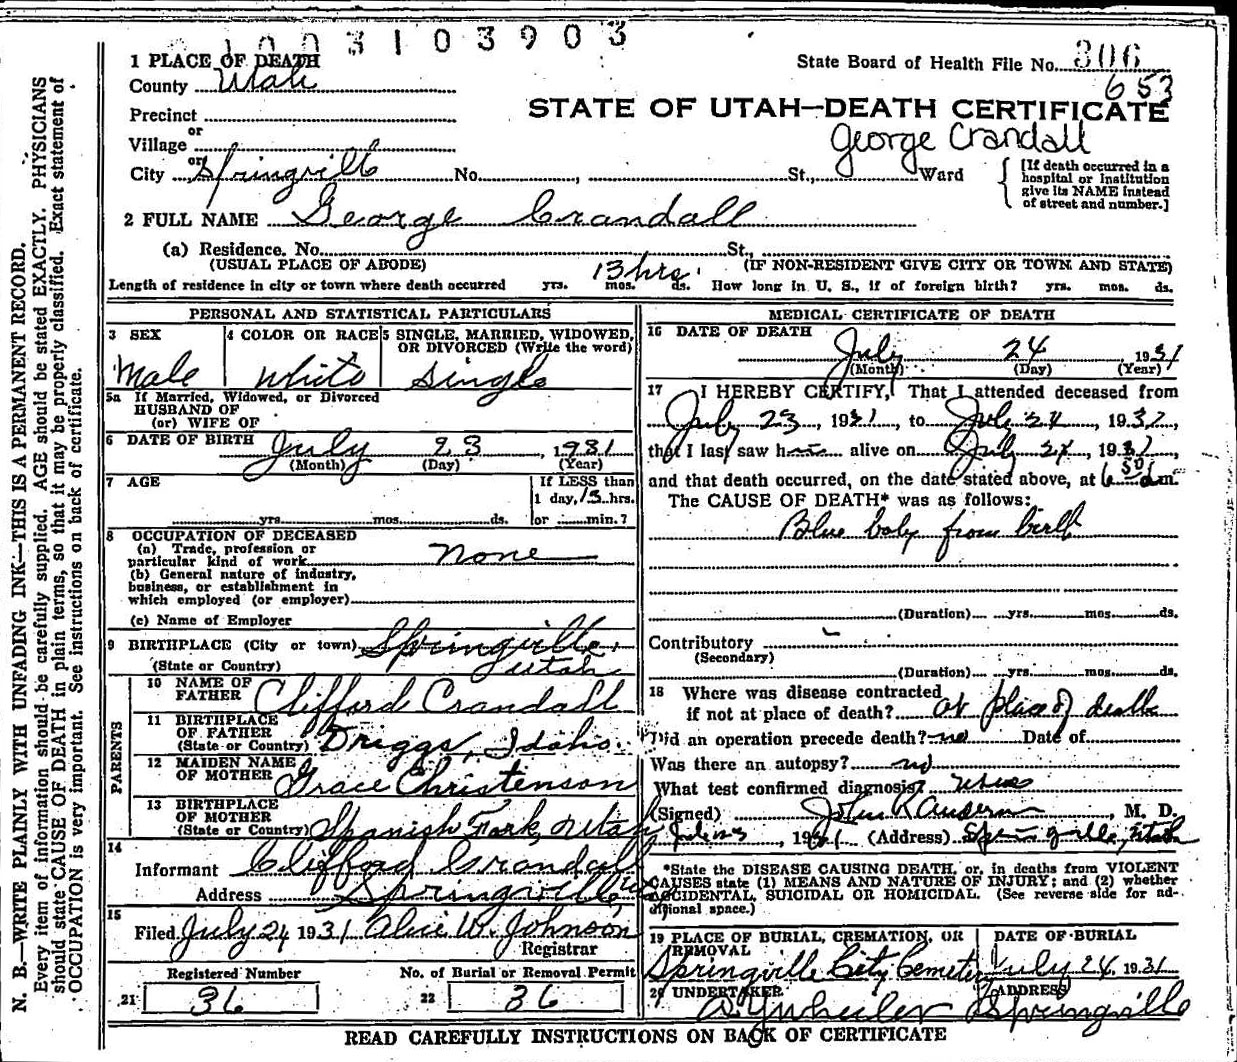 1003103903
1 PLACE OF DEATH
State Board of Health File No. 306
653
County Utah
STATE OF UTAH—DEATH CERTIFICATE
Precinct
George Crandall
or
Village
or
City Springville No. , St., Ward
[If death occurred in a
hospital or institution
give its NAME instead
of street and number.]
2 FULL NAME George Crandall
(a) Residence. No. St.,
(USUAL PLACE OF ABODE) (IF NON-RESIDENT GIVE CITY OR TOWN AND STATE)
13 hrs.
Length of residence in city or town where death occurred yrs. mos. ds. How long in U. S., if of foreign birth? yrs. mos. ds.
PERSONAL AND STATISTICAL PARTICULARS
3 SEX
Male
4 COLOR OR RACE
White
5 SINGLE, MARRIED, WIDOWED,
OR DIVORCED (Write the word)
Single
5a If Married, Widowed, or Divorced
HUSBAND OF
(or) WIFE OF
6 DATE OF BIRTH July 23, 1931
(Month) (Day) (Year)
7 AGE
yrs. mos. ds.
If LESS than
1 day, 13 hrs.
or min.?
8 OCCUPATION OF DECEASED
(a) Trade, profession or
particular kind of work None
(b) General nature of industry,
business, or establishment in
which employed (or employer)
(c) Name of Employer
9 BIRTHPLACE (City or town) Springville,
(State or Country) Utah
PARENTS
10 NAME OF
FATHER Clifford Crandall
11 BIRTHPLACE
OF FATHER
(State or Country) Driggs, Idaho.
12 MAIDEN NAME
OF MOTHER Grace Christenson
13 BIRTHPLACE
OF MOTHER
(State or Country) Spanish Fork, Utah
14
Informant Clifford Crandall
Address Springville
15
Filed July 24 1931 Alice W. Johnson
Registrar
Registered Number No. of Burial or Removal Permit
21 36 22 36
MEDICAL CERTIFICATE OF DEATH
16 DATE OF DEATH
July 24, 1931
(Month) (Day) (Year)
17 I HEREBY CERTIFY, That I attended deceased from
July 23, 1931, to July 24, 1931,
that I last saw h alive on July 24, 1931,
and that death occurred, on the date stated above, at 6 50 a.m.
The CAUSE OF DEATH* was as follows:
Blue baby from birth
(Duration) yrs. mos. ds.
Contributory
(Secondary)
(Duration) yrs. mos. ds.
18 Where was disease contracted
if not at place of death? at place of death
Did an operation precede death? no Date of
Was there an autopsy? no
What test confirmed diagnosis?
(Signed) John K Anderson, M. D.
, 1931 (Address) Springville, Utah
*State the DISEASE CAUSING DEATH, or, in deaths from VIOLENT
CAUSES state (1) MEANS AND NATURE OF INJURY; and (2) whether
ACCIDENTAL, SUICIDAL OR HOMICIDAL. (See reverse side for ad-
ditional space.)
19 PLACE OF BURIAL, CREMATION, OR
REMOVAL
Springville City Cemetery
DATE OF BURIAL
July 24, 1931
20 UNDERTAKER
Wheeler
ADDRESS
Springville
READ CAREFULLY INSTRUCTIONS ON BACK OF CERTIFICATE
N. B.—WRITE PLAINLY WITH UNFADING INK—THIS IS A PERMANENT RECORD.
Every item of information should be carefully supplied. AGE should be stated EXACTLY. PHYSICIANS
should state CAUSE OF DEATH in plain terms, so that it may be properly classified. Exact statement of
OCCUPATION is very important. See instructions on back of certificate.